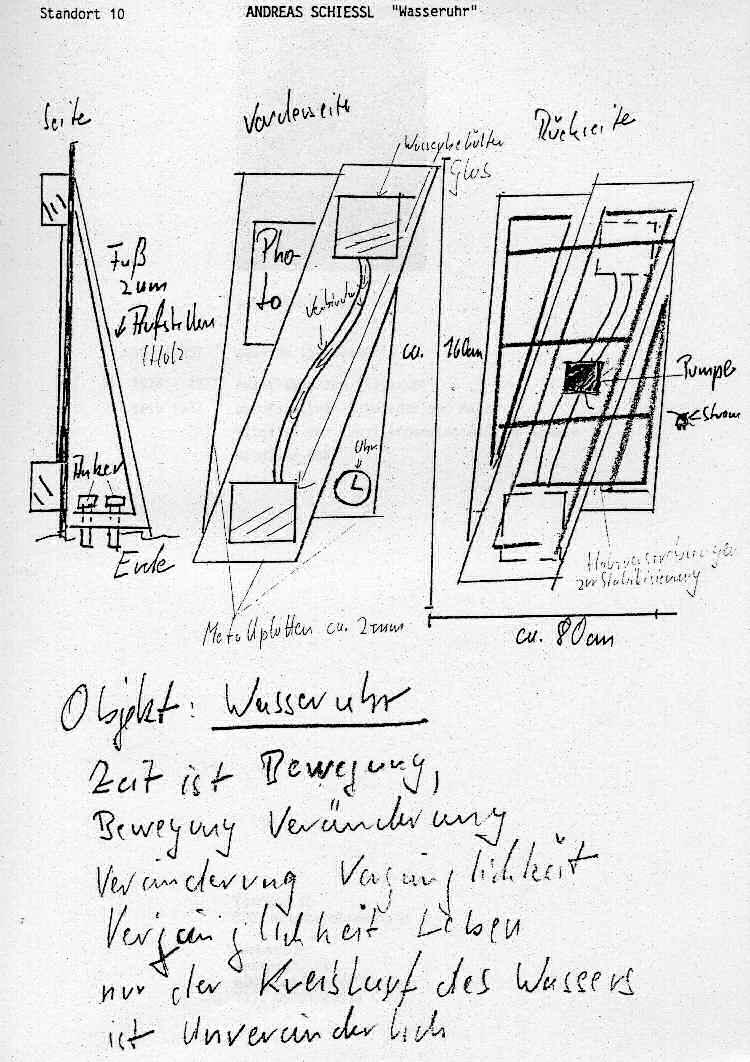 Standort 10
ANDREAS SCHIESSL "Wasseruhr"
Seite
Vorderseite
Rückseite
Wasserbehälter
Glas
Fuß
zum
Aufstellen
(Holz
Pho-
to
ca. 160cm
Pumpe
Strom
Anker
Uhr
Erde
Metallplatten ca. 2mm
zur Stabilisierung
ca. 80cm
Objekt: Wasseruhr
Zeit ist Bewegung,
Bewegung Veränderung
Veränderung Vergänglichkeit
Vergänglichkeit Leben
nur der Kreislauf des Wassers
ist Unveränderlich